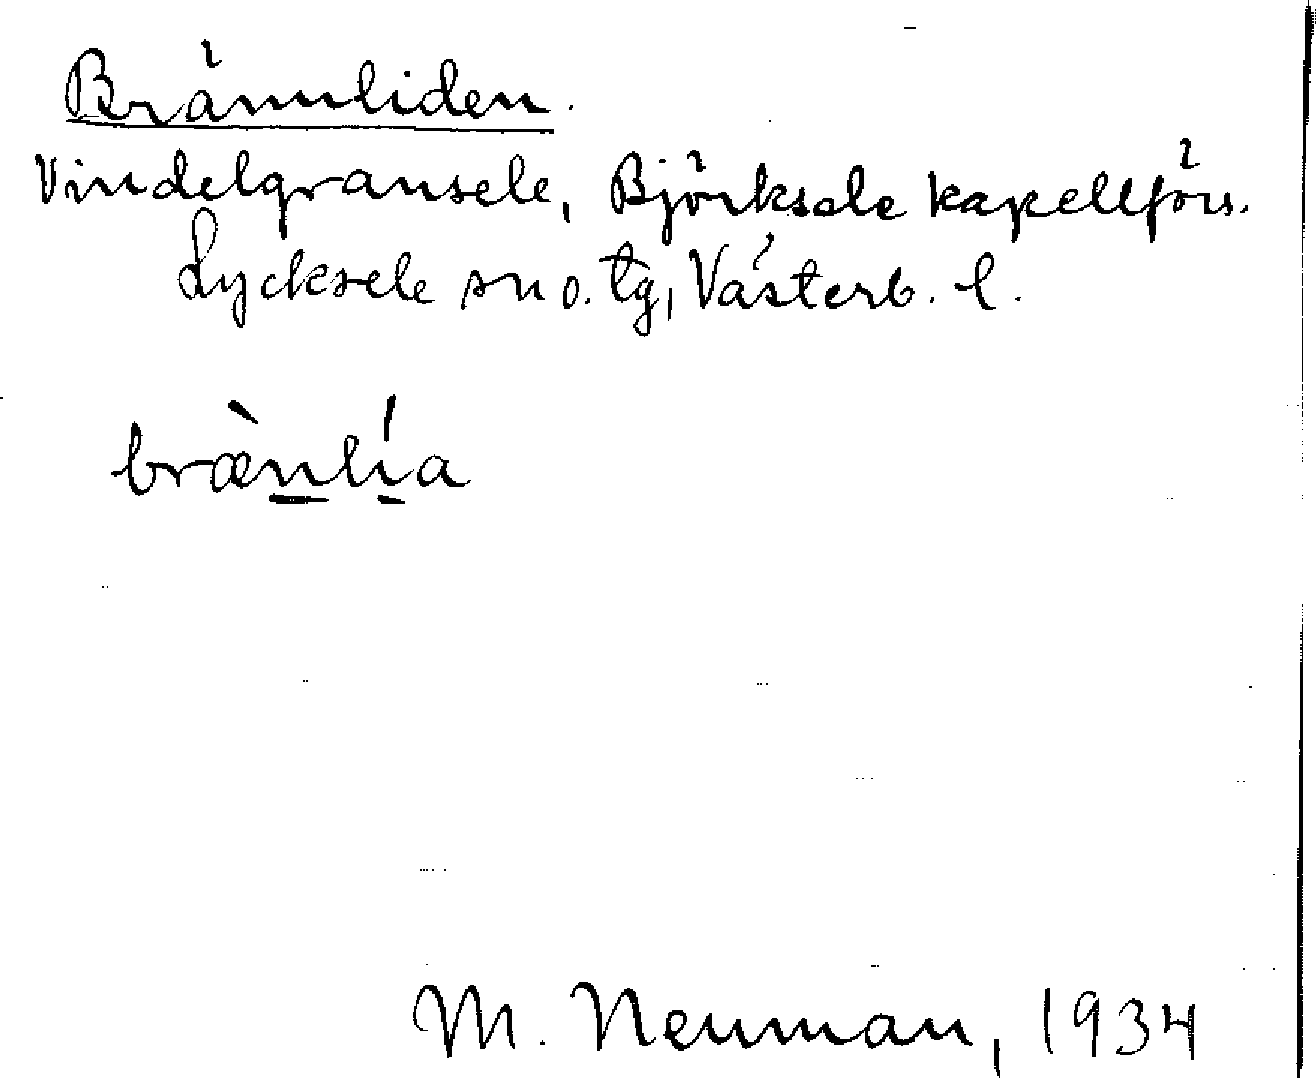 Brännliden.
Vindelgransele, Björksele kapellförs.
Lycksele sn o. tg, Västerb. l.
bræ̀nlí̱a
M. Neuman, 1934